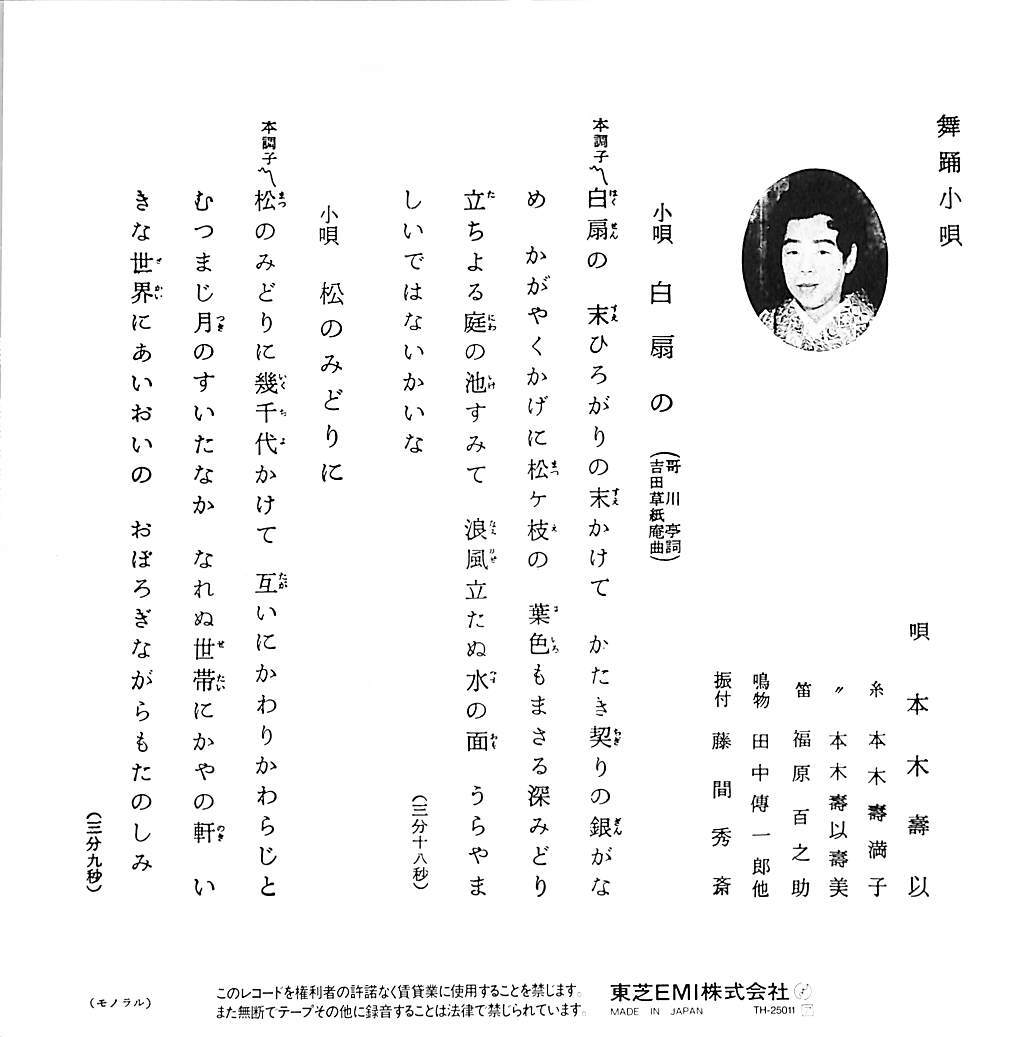 舞踊小唄
唄 本木壽以
糸 本木壽満子
〃 本木壽以壽美
笛 福原百之助
鳴物 田中傳一郎他
振付 藤間秀斎
小唄 白扇の (哥川亭詞 吉田草紙庵曲)
本調子〽白扇の 末ひろがりの末かけて かたき契りの銀がな
め かがやくかげに松ヶ枝の 葉色もまさる深みどり
立ちよる庭の池すみて 浪風立たぬ水の面 うらやま
しいではないかいな
(三分十八秒)
小唄 松のみどりに
本調子〽松のみどりに幾千代かけて 互いにかわりかわらじと
むつまじ月のすいたなか なれぬ世帯にかやの軒 い
きな世界にあいおいの おぼろぎながらもたのしみ
(三分九秒)
(モノラル)
このレコードを権利者の許諾なく賃貸業に使用することを禁じます。
また無断でテープその他に録音することは法律で禁じられています。
東芝EMI株式会社
MADE IN JAPAN TH-25011